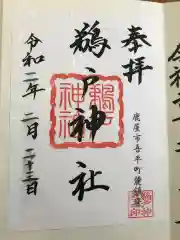 奉拝
鵜戸神社
令和二年二月二十三日
鹿屋市吾平町
鵜戸
神社